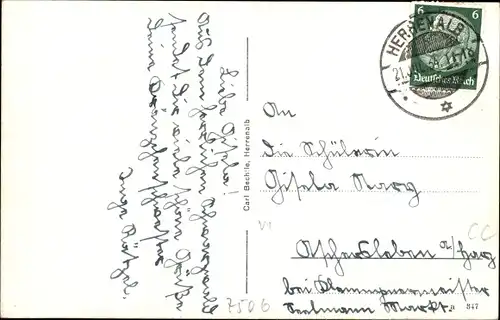 Liebe Gisela!
Aus dem herrlichen Schwarzwald
sendet Dir viele schöne Grüße
Deine
Inge
Carl Bechtle, Herrenalb
6 6
Deutsches Reich
HERRENALB
An
die Schülerin
Gisela Narg
Aschersleben a/Harz
bei Klempnermeister
Seelmann Markt
347
VI
7506
CC